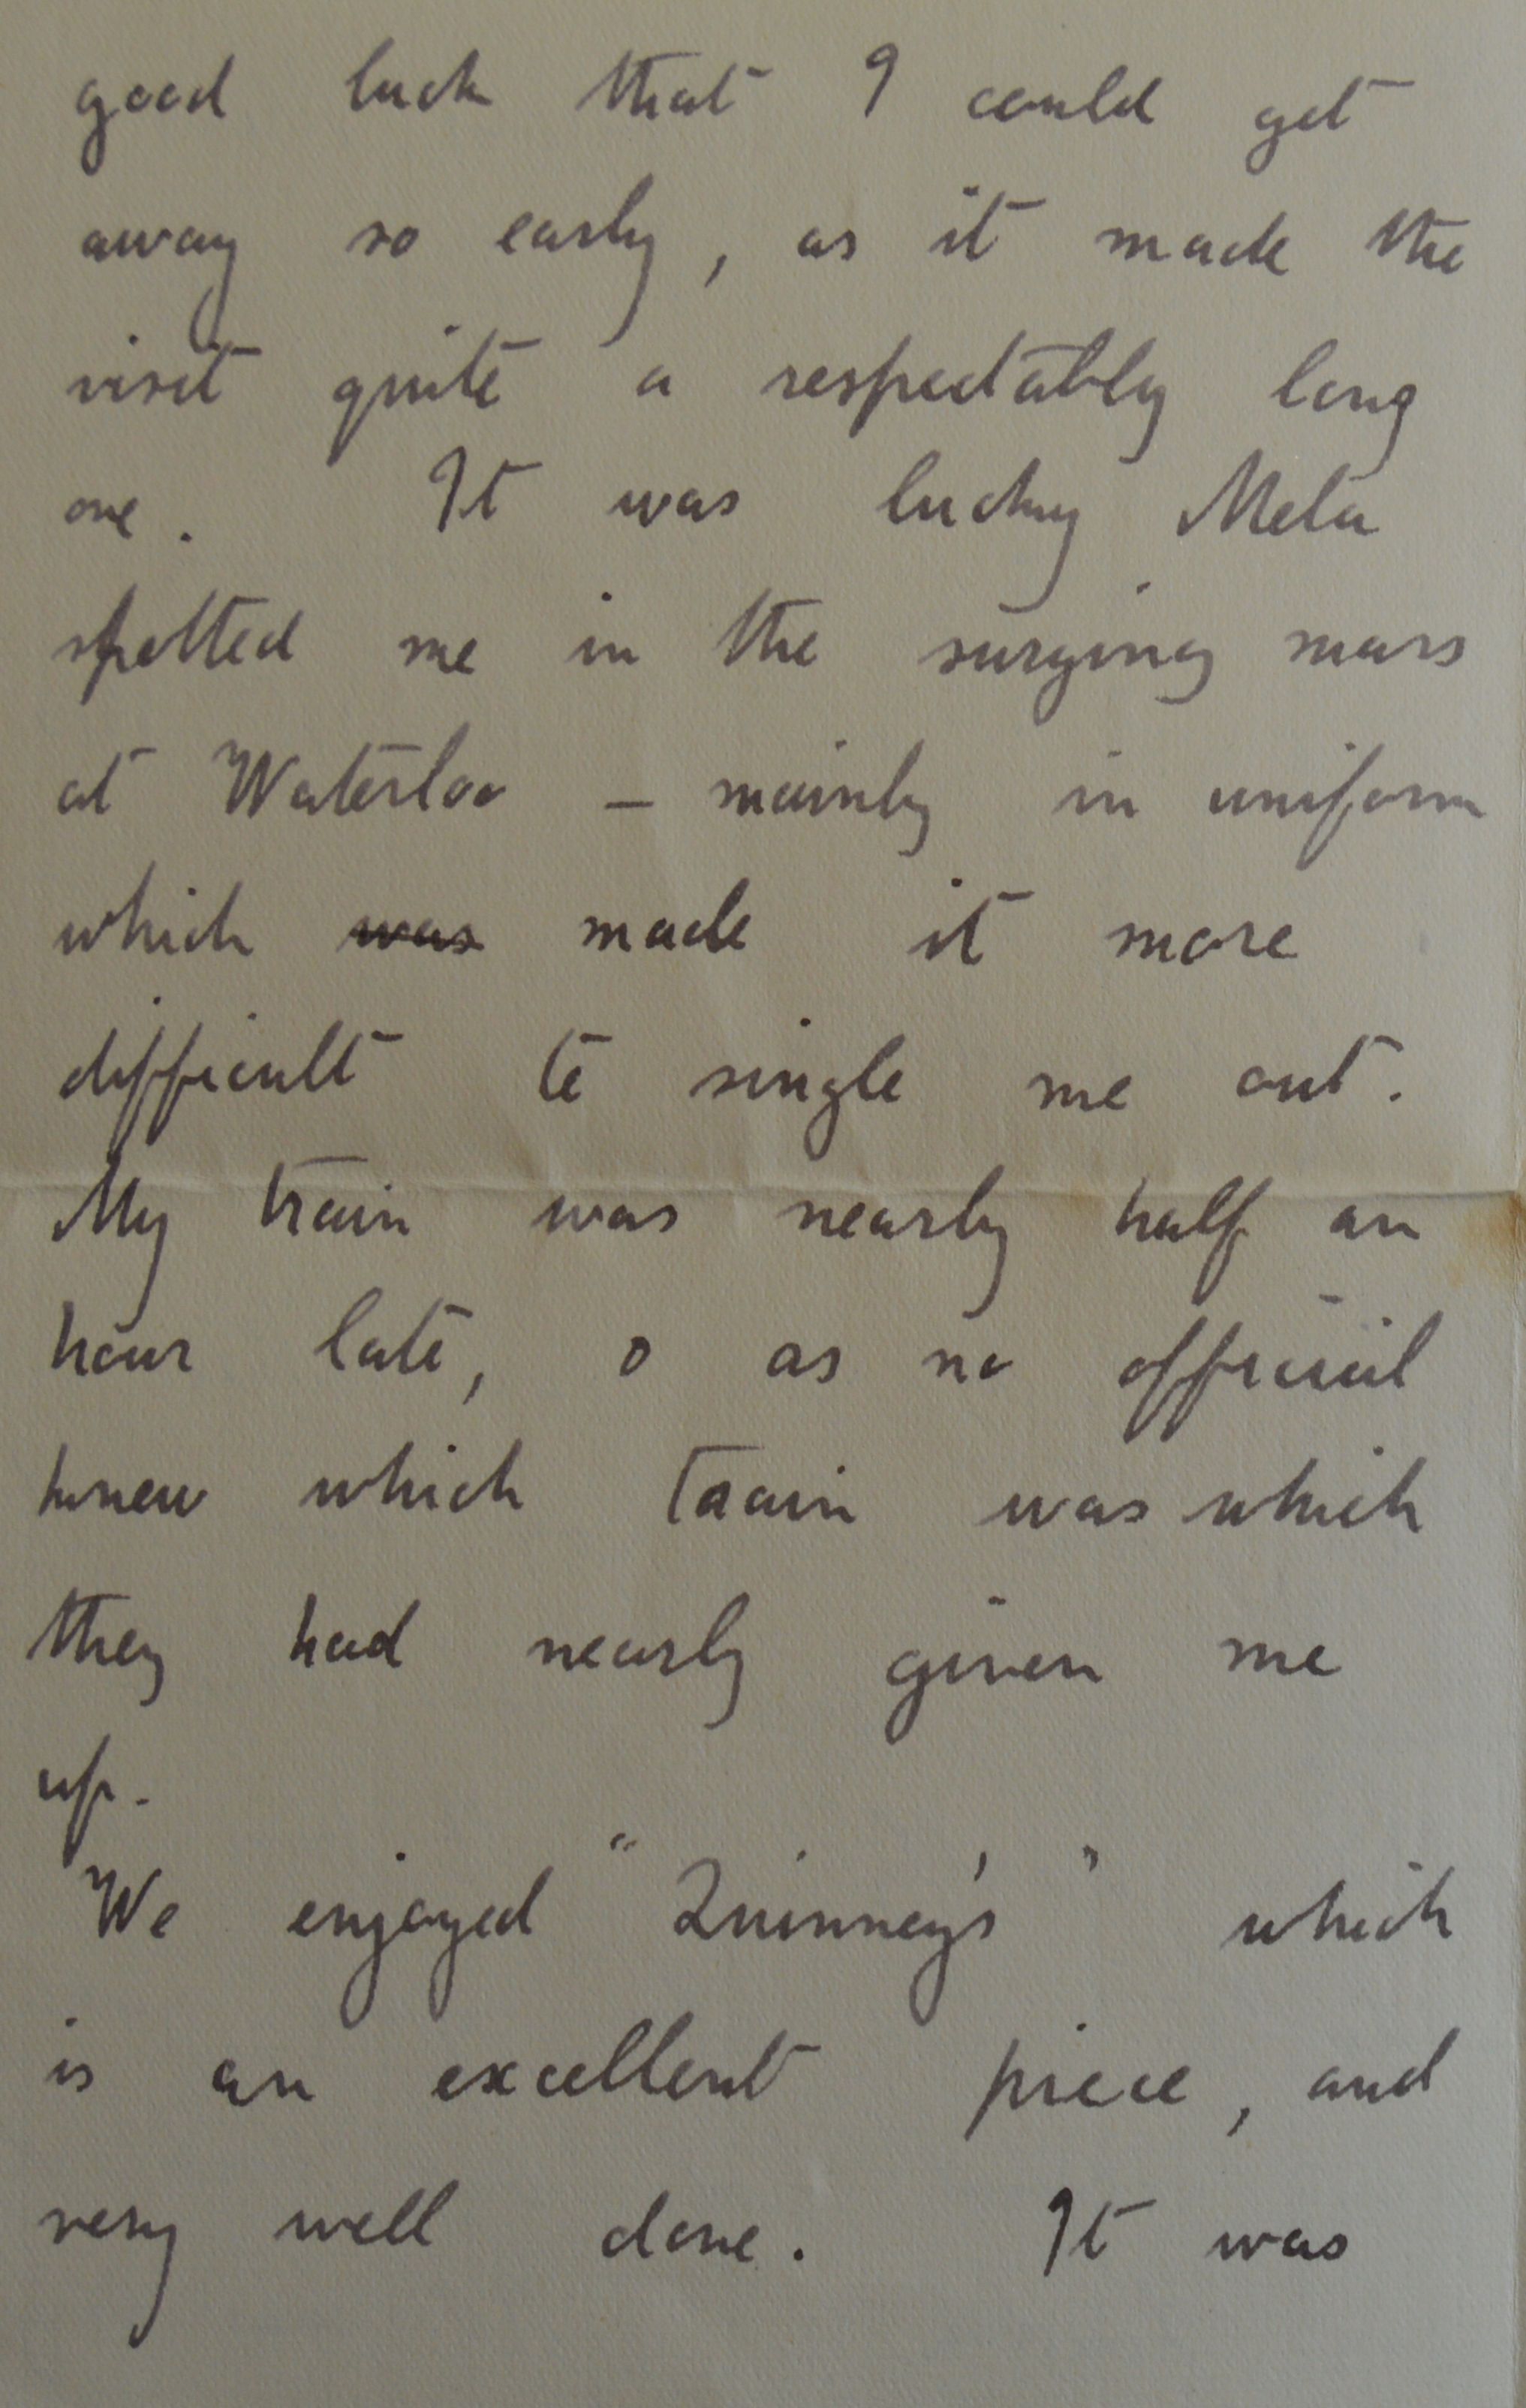 good luck that I could get
away so early, as it made the
visit quite a respectably long
one. It was lucky Meta
spotted me in the surging mass
at Waterloo – mainly in uniform
which was made it more
difficult to single me out.
My train was nearly half an
hour late, & as no official
knew which train was which
they had nearly given me
up.
We enjoyed "Quinney's" which
is an excellent piece, and
very well done. It was